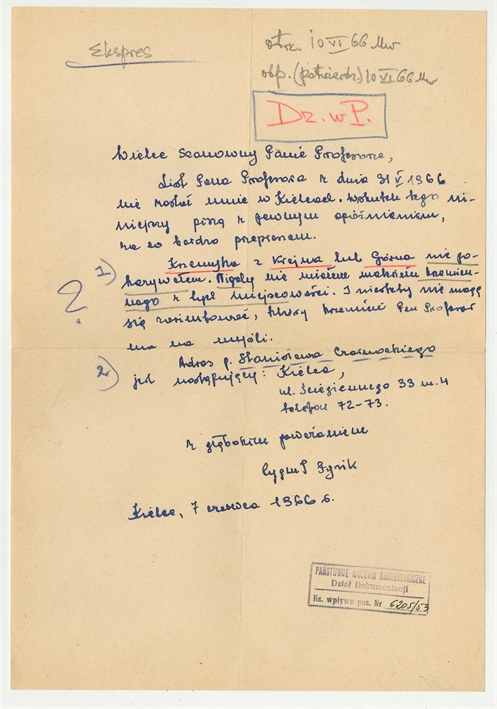 Ekspres
otrz. 10 VI 66 Mw
odp. (potwierdz) 10 VI 66 Mw
Dz. w P.
Wielce Szanowny Panie Profesorze,
List Pana Profesora z dnia 31 V 1966
nie zastał mnie w Kielcach. Wskutek tego ni-
niejszy piszę z pewnym opóźnieniem,
za co bardzo przepraszam.
1) Krzemyka z Krajna lub Górna nie po-
krywałem. Nigdy nie miałem materiału krzemien-
nego z tych miejscowości. I niestety nie mogę
się zorientować, który krzemień Pan Profesor
ma na myśli.
?
2) Adres p. Stanisława Czarnockiego
jest następujący: Kielce,
ul. Ściegiennego 33 m. 4
telefon 72-73.
z głębokim poważaniem
Kielce, 7 czerwca 1966 r.
PAŃSTWOWE MUZEUM ARCHEOLOGICZNE
Dział Dokumentacji
Ks. wpływu poz. Nr 6205/53